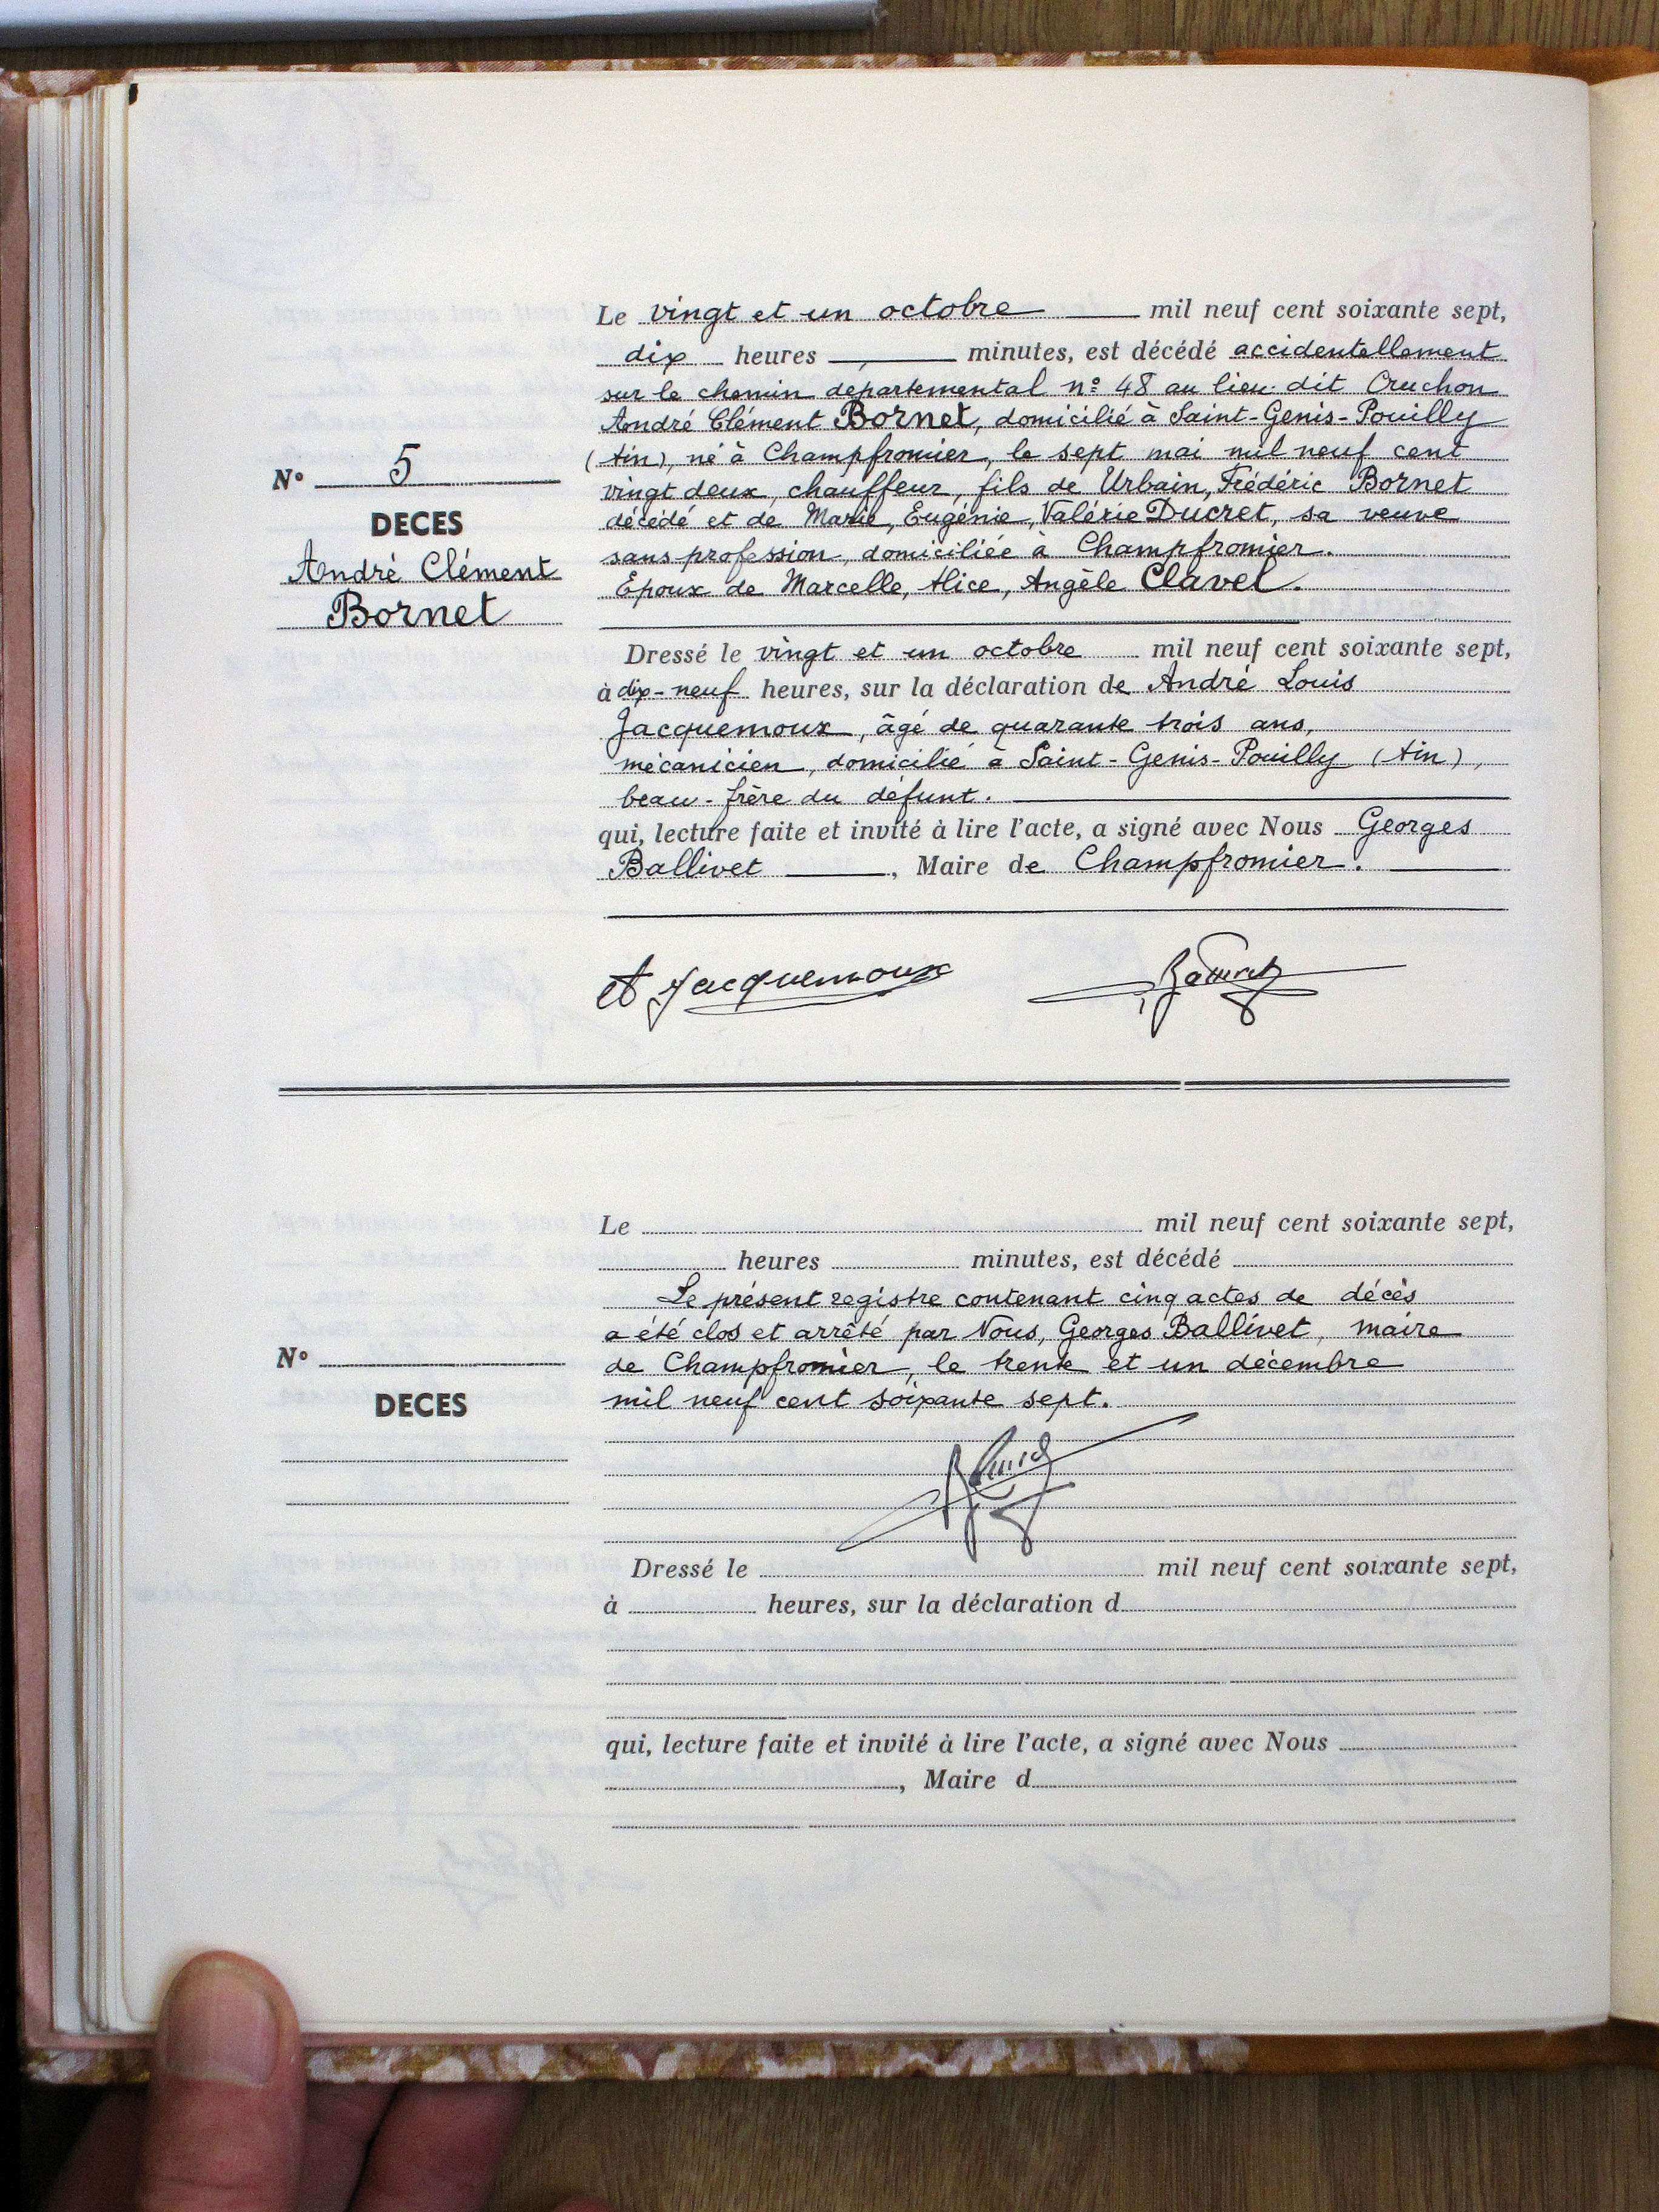 Le vingt et un octobre mil neuf cent soixante sept,
dix heures , minutes, est décédé accidentellement
sur le chemin departemental n° 48 au lieu dit Cruchon
André Clément Bornet, domicilié à Saint-Genis-Pouilly
(Ain), né à Champfromier, le sept mai mil neuf cent
vingt deux, chauffeur, fils de Urbain, Frédéric Bornet
décédé et de Marie, Eugénie, Valérie Ducret, sa veuve
sans profession, domiciliée à Champfromier.
Epoux de Marcelle, Alice, Angèle Clavel.
N° 5
DECES
André Clément
Bornet
Dressé le vingt et un octobre mil neuf cent soixante sept,
à dix-neuf heures, sur la déclaration de André Louis
Jacquemoux, âgé de quarante trois ans,
mécanicien, domicilié à Saint-Genis-Pouilly (Ain),
beau-frère du défunt.
qui, lecture faite et invité à lire l'acte, a signé avec Nous Georges
Ballivet , Maire de Champfromier.
A Jacquemoux
Le mil neuf cent soixante sept,
heures minutes, est décédé
Le présent registre contenant cinq actes de décès
a été clos et arrêté par Nous, Georges Ballivet, maire
de Champfromier, le trente et un décembre
mil neuf cent soixante sept.
N°
DECES
Dressé le mil neuf cent soixante sept,
à heures, sur la déclaration d
qui, lecture faite et invité à lire l'acte, a signé avec Nous
, Maire d